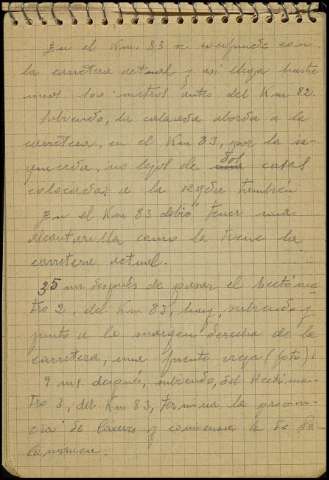 En el Km 83 se confunde con
la carretera actual y así llega hasta
unos 100 metros antes del Km 82.
Subiendo, la calzada aborda a la
carretera, en el Km 83, por la iz-
quierda, no lejos de dos casas
colocadas a la izqda también
En el Km 83 debió tener una
alcantarilla como la tiene la
carretera actual.
35 ms después de pasar el Hectóme-
tro 2, del Km 83, hay, subiendo y
junto a la margen derecha de la
carretera, una fuente vieja (foto) i
9 ms después, subiendo, del Hectóme-
tro 3, del Km 83, termina la provin-
cia de Cáceres y comienza la de Sa-
lamanca.